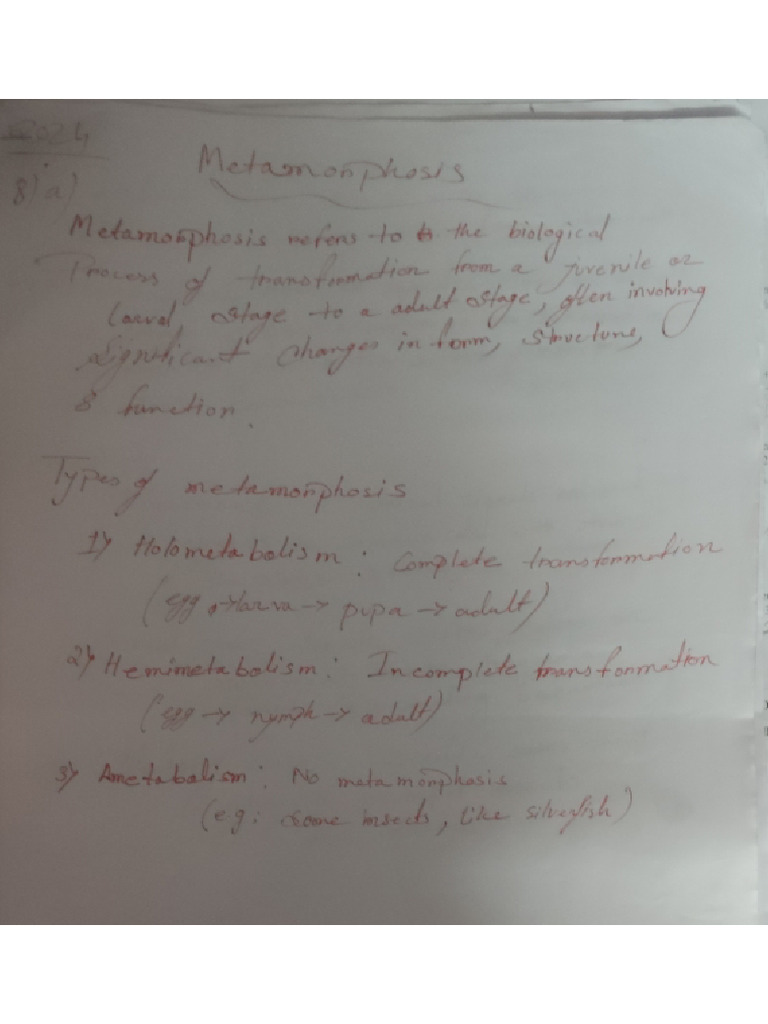 2024
8) a)
Metamorphosis
Metamorphosis refers to the biological
Process of transformation from a juvenile or
larval stage to a adult stage, often involving
Significant changes in form, structure,
& function.
Types of metamorphosis
1) Holometabolism : Complete transformation
(egg → larva → pupa → adult)
2) Hemimetabolism : Incomplete transformation
(egg → nymph → adult)
3) Ametabalism : No metamorphosis
(e.g: Some insects, like silverfish)